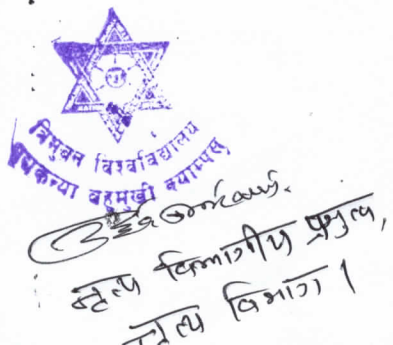 त्रिभुवन विश्वविद्यालय
पद्मकन्या बहुमुखी क्याम्पस
नृत्य विभागीय प्रमुख,
नृत्य विभाग ।